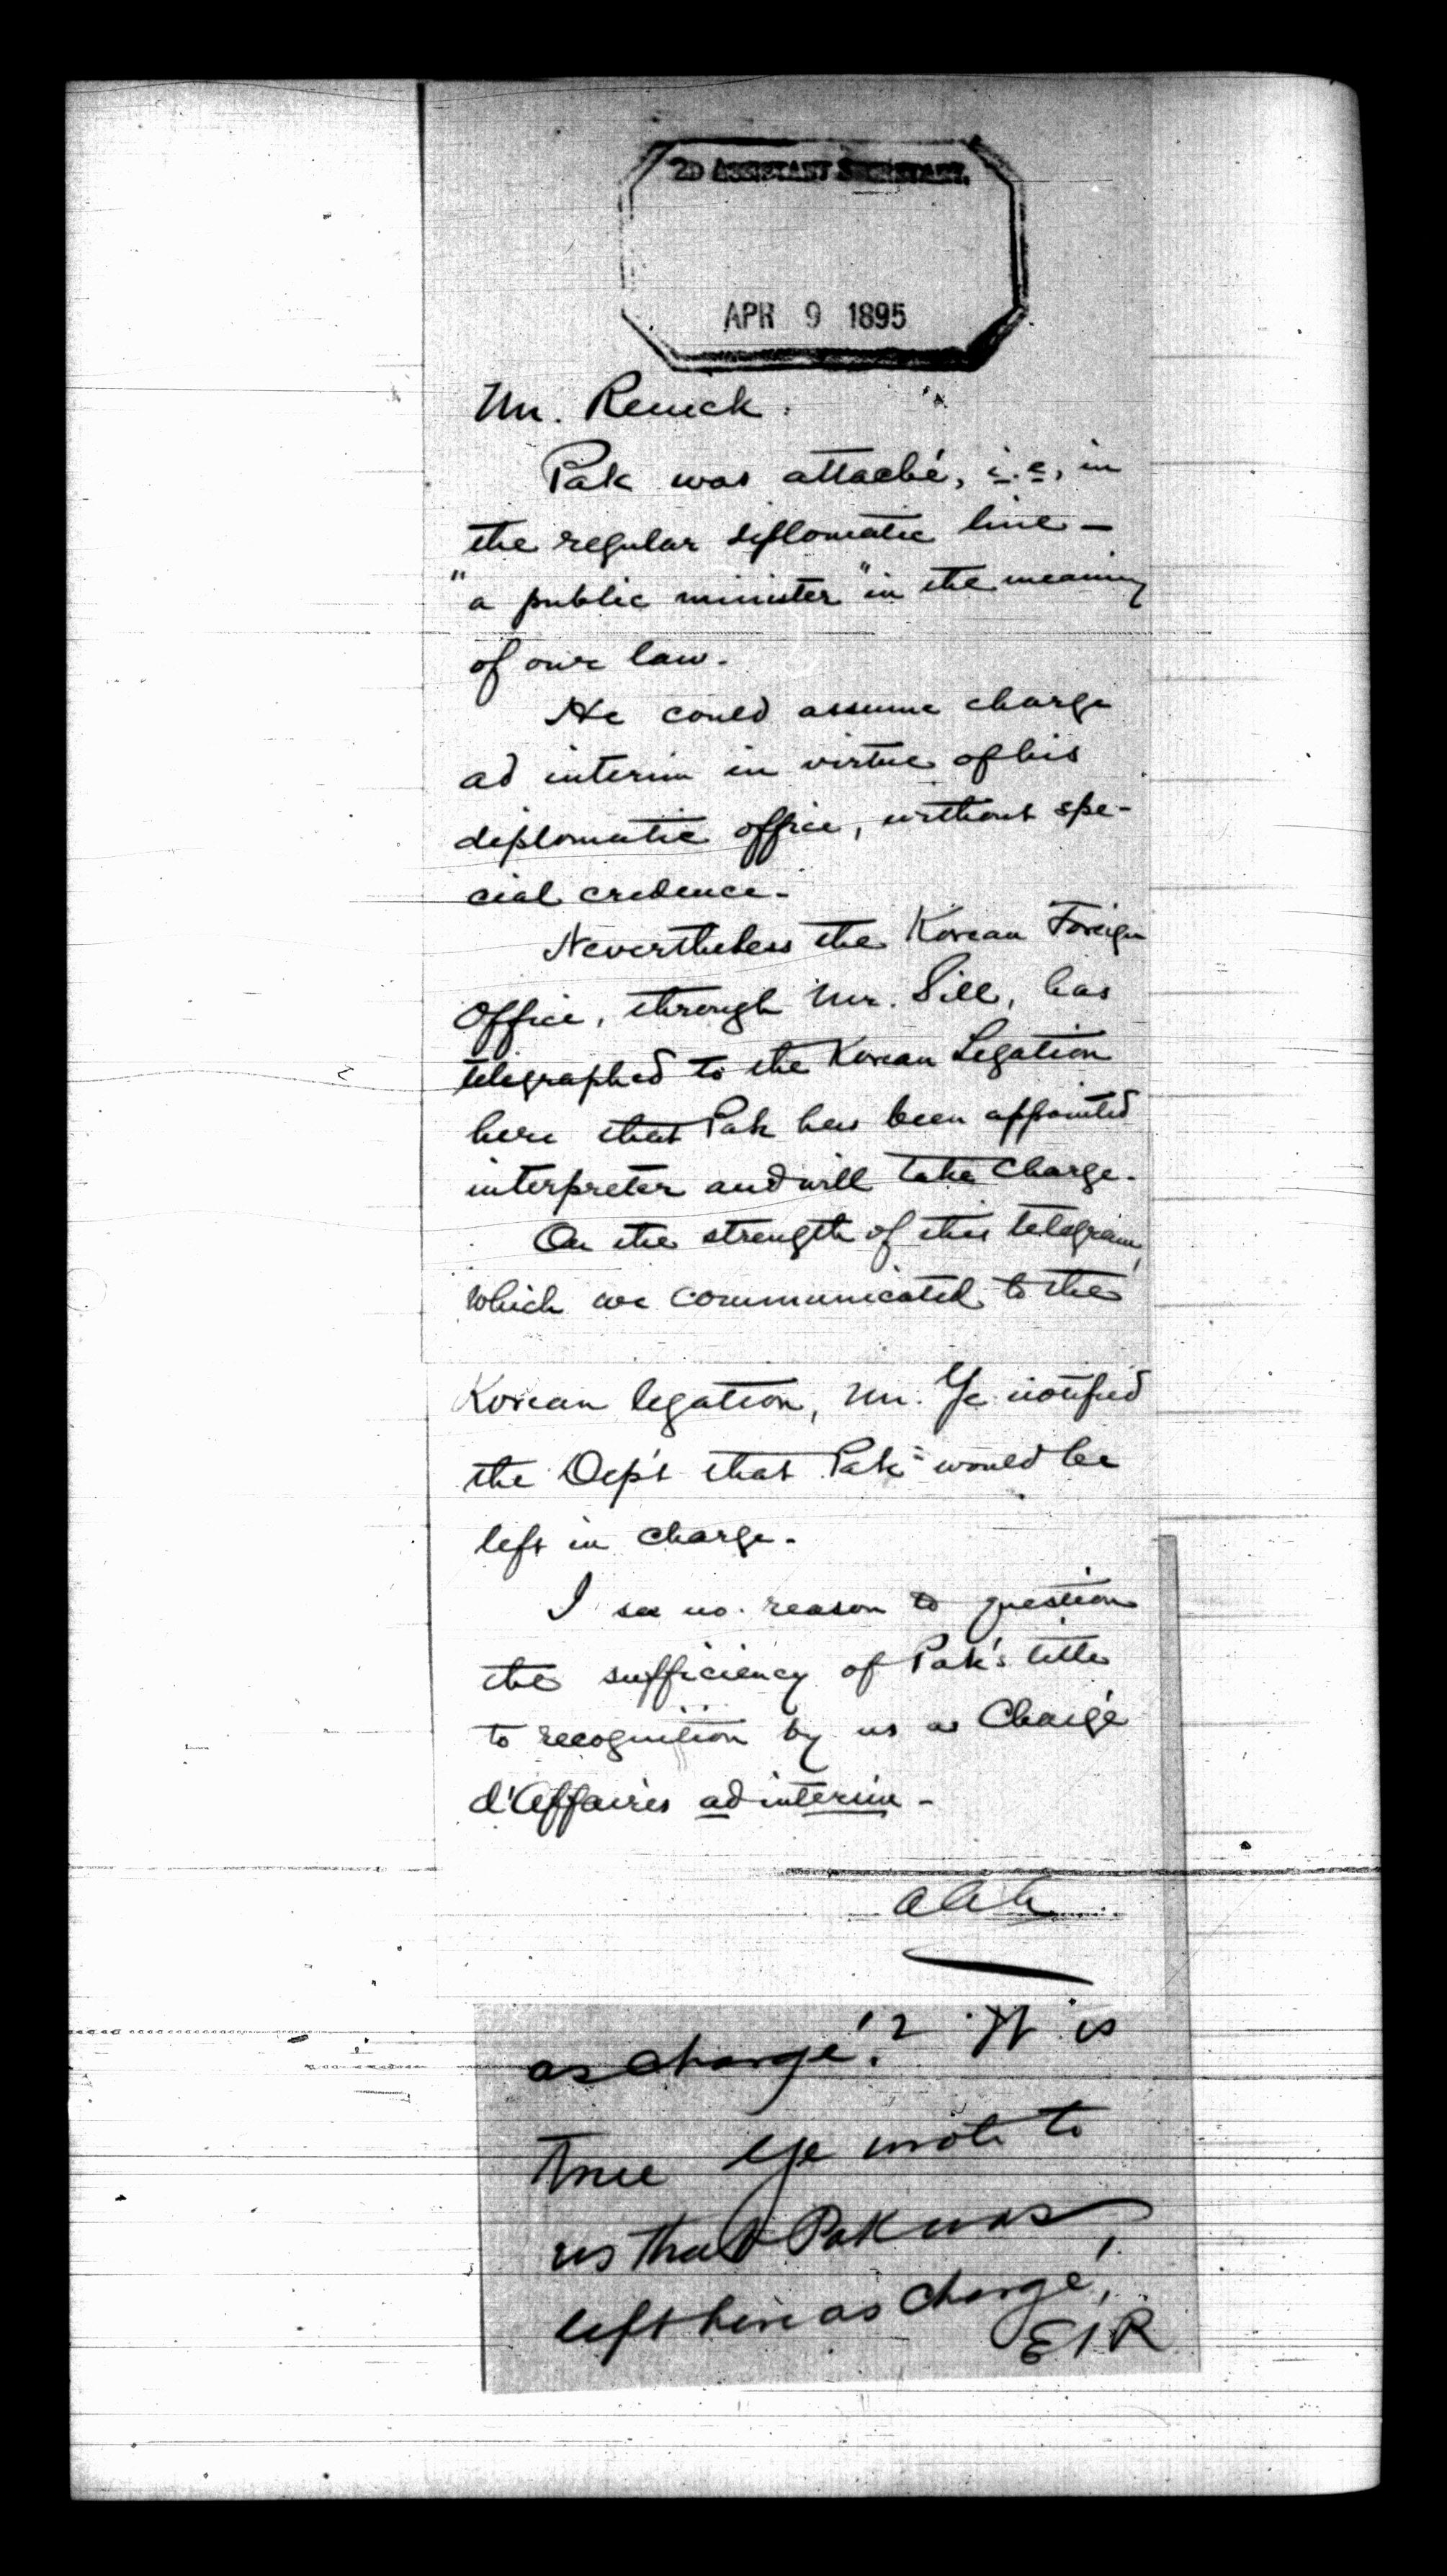 2D ASSISTANT SECRETARY.
APR 9 1895
Mr. Renick.
Pak was attaché, i.e, in
the regular diplomatic line —
"a public minister" in the meaning
of our law.
He could assume charge
ad interim in virtue of his
diplomatic office, without spe-
cial credence.
Nevertheless the Korean Foreign
Office, through Mr. Sill, has
telegraphed to the Korean Legation
here that Pak has been appointed
interpreter and will take charge.
On the strength of this telegram,
which we communicated to the
Korean legation, Mr. Ye notified
the Dep't that Pak would be
left in charge.
I see no reason to question
the sufficiency of Pak's title
to recognition by us as Chargé
d'Affaires ad interim -
AAA
as chargé? It is
true Ye wrote to
us that Pak was
left here as chargé,
EIR